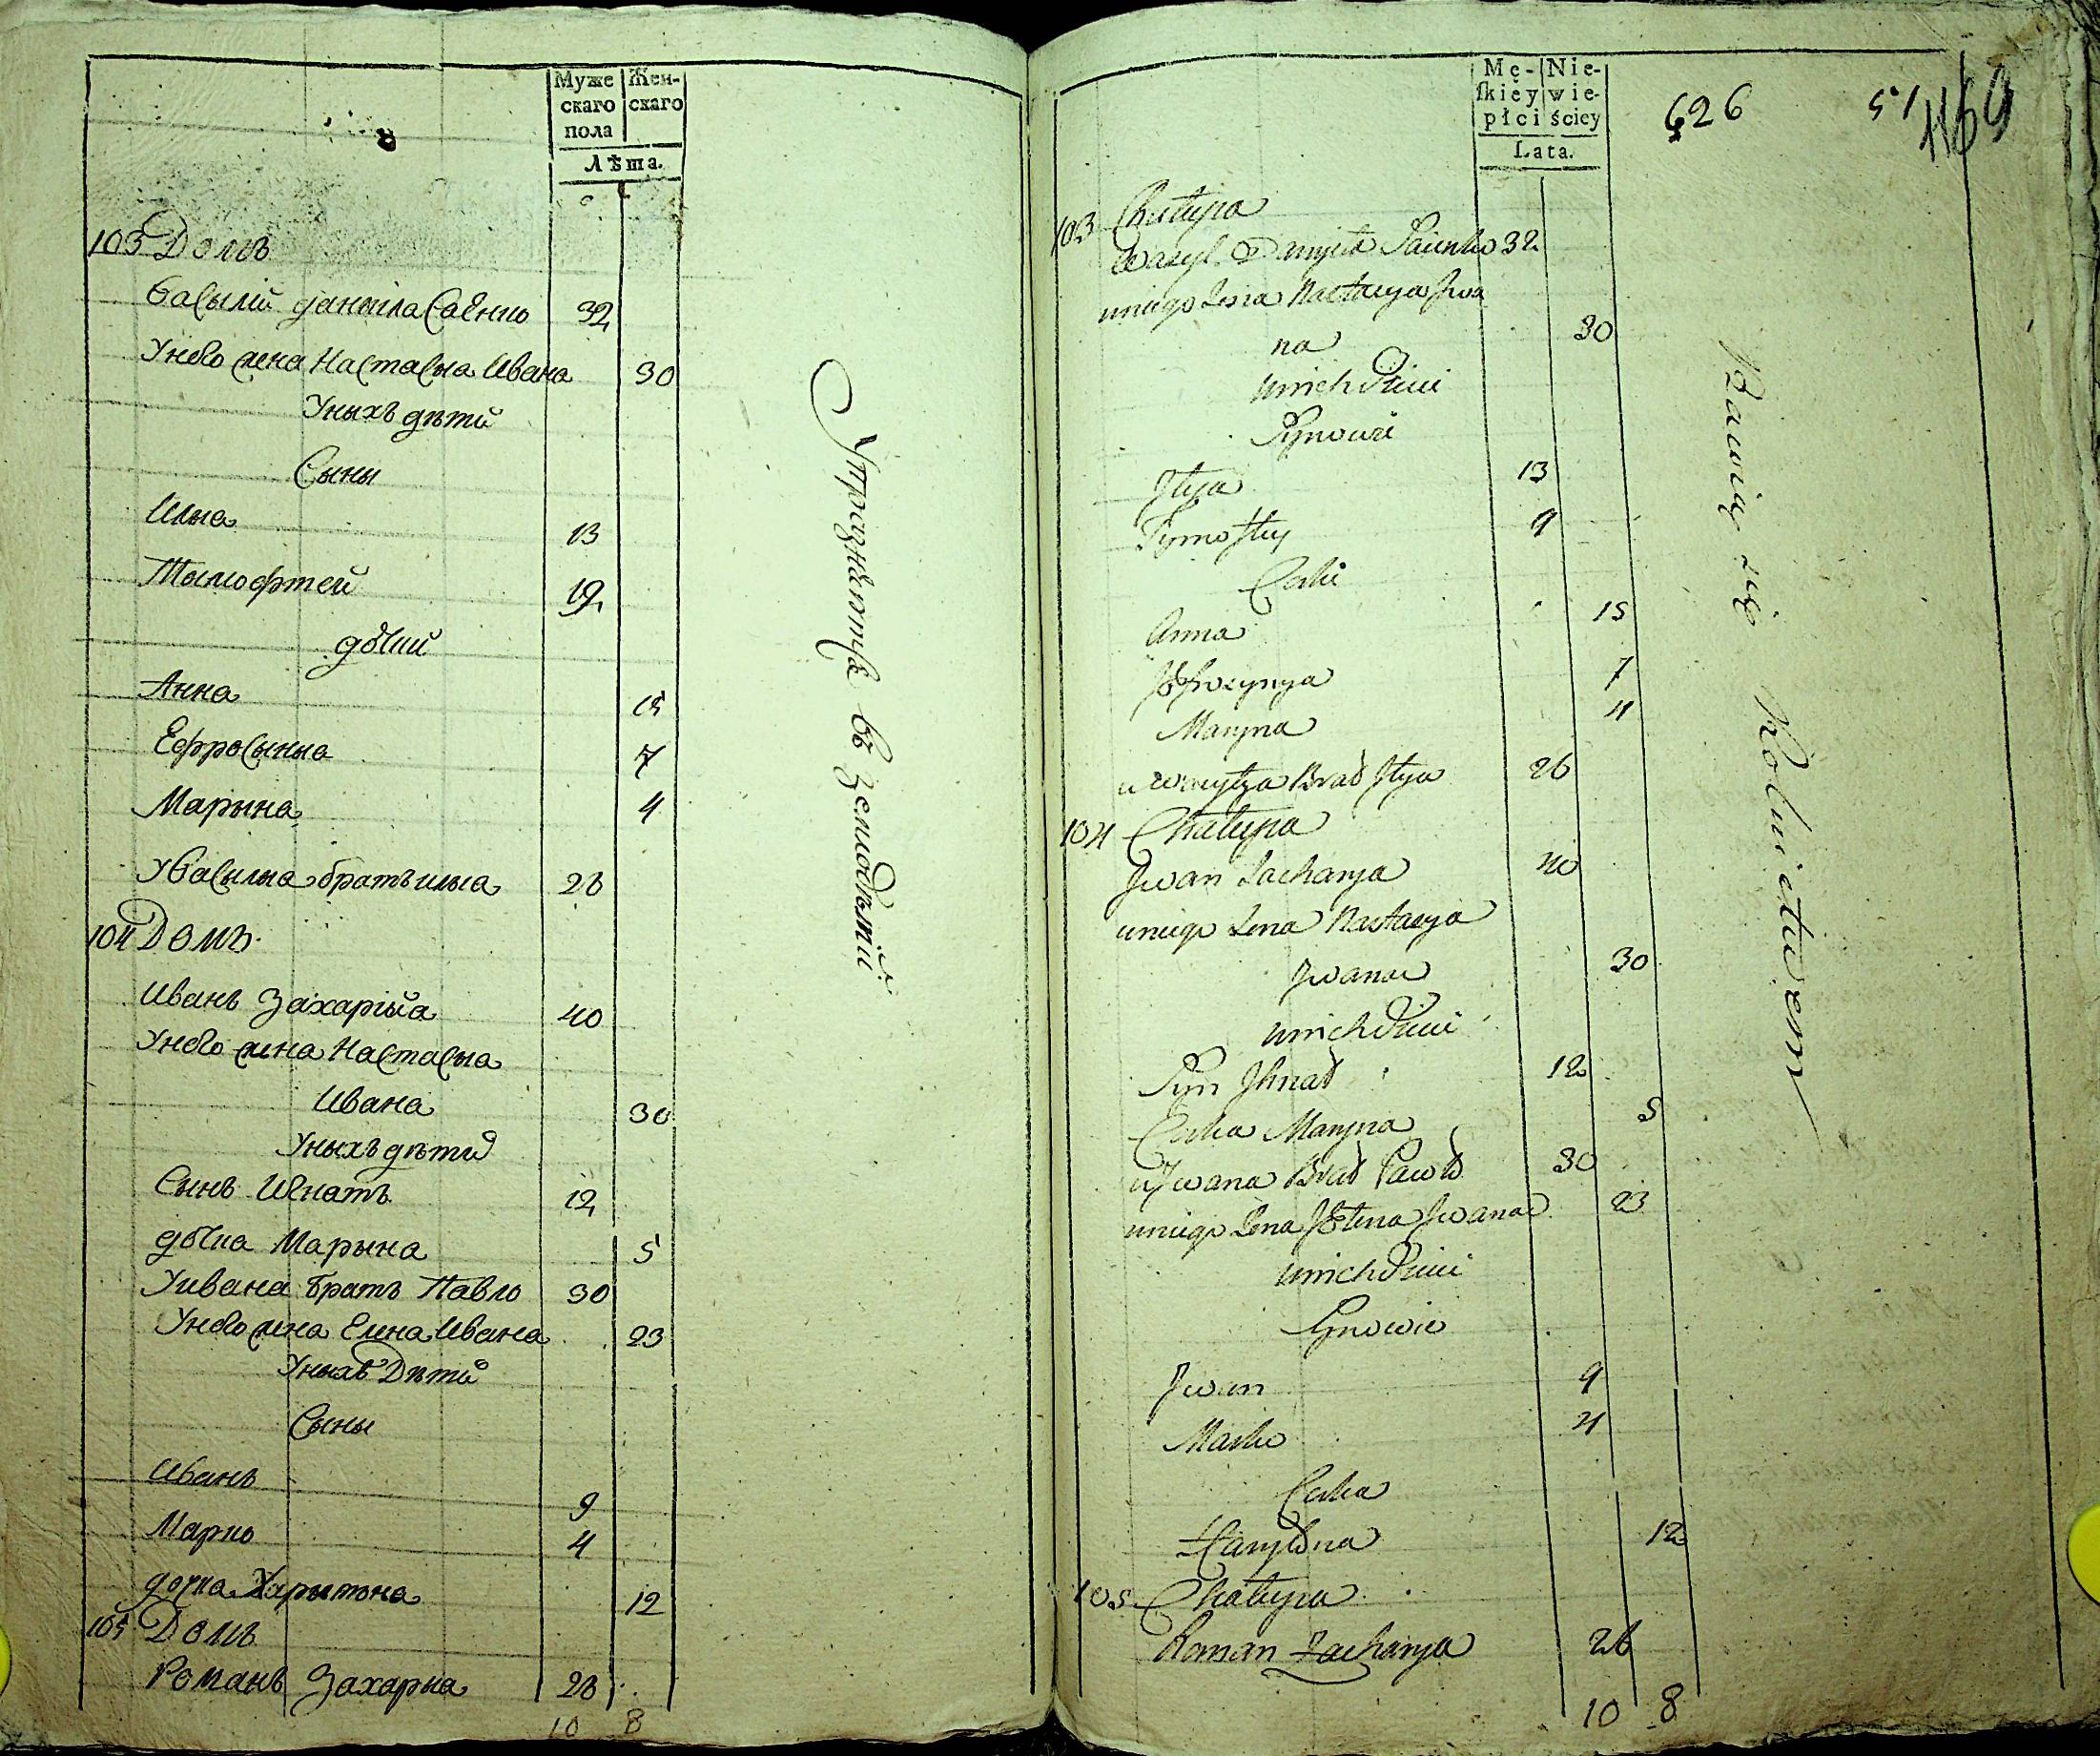 Муже
скаго
пола
Жен-
скаго
Лѣта.
103 Домъ
Василій Даніила Саенко 32
Унего жена Настасиа Ивана 30
Уныхъ дѣти
Сыны
Илиа 13
Тымофтей 19
дочки
Анна 15
Ефросыныа 7
Марына 4
Увасылиа братъ илиа 26
104 Домъ
Иванъ Захарійа 40
Унего жена Настасиа
Ивана 30
Уныхъ дѣти
Сынъ Игнатъ 12
дочка Марына 5
Уивана братъ Павло 30
Унего жена Елена Ивана 23
Уныхъ Дѣти
Сыны
Иванъ 9
Марко 4
дочка Харытына 12
105 Домъ
Романъ Захариа 26
10 8
Упражнѣется въ земледѣліи
Mę-
ſkiey
płci
Nie-
wie-
ściey
Lata.
626
51
1169
103 Chatupa
Wasyl Daniela Saienko 32
uniego Zena Nastasya Jwa
na 30
unich Dzieci
Synowie
Jlya 13
Tymoftey 9
Corki
Anna 15
Jefrozynya 7
Maryna 4
u Wasylya Brat Jlya 26
104 Chatupa
Jwan Zacharya 40
uniego Zena Nastasya
Jwana 30
unich Dzieci
Syn Jhnat 12
Corka Maryna 5
u Jwana Brat Pawło 30
uniego Zena Jelena Jwana 23
unich Dzieci
Synowie
Jwan 9
Marko 4
Corka
Harytyna 12
105 Chatupa
Roman Zacharya 26
10 8
Bawią się Rolnictwem